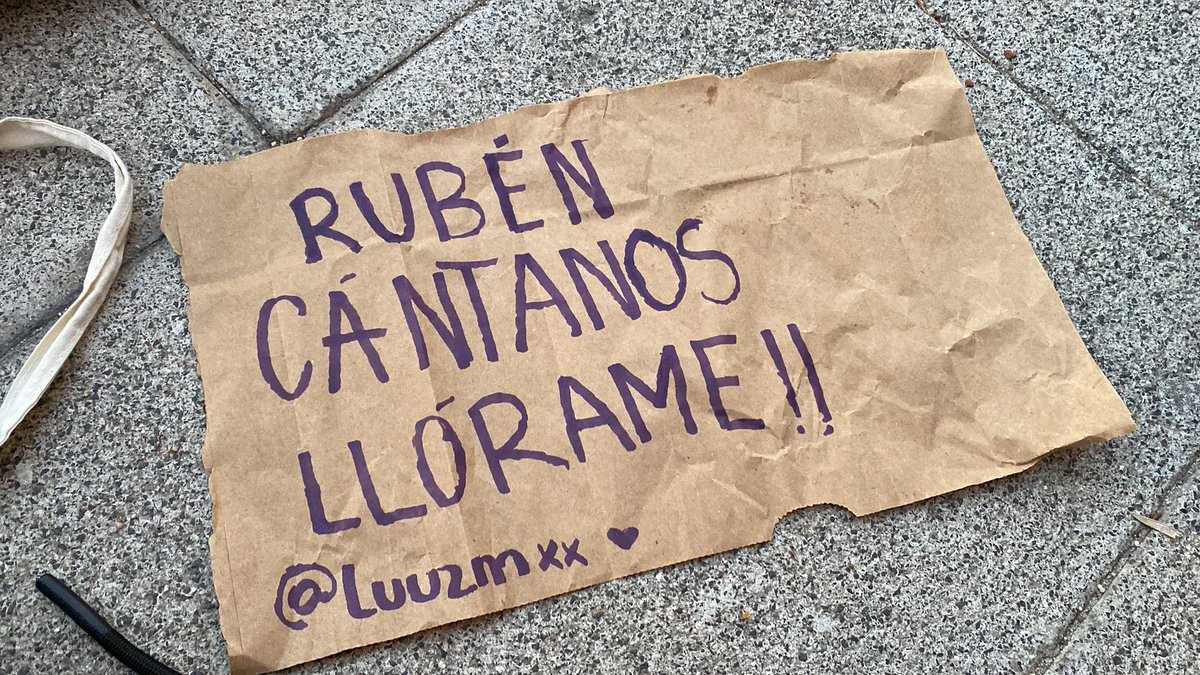 RUBÉN
CÁNTANOS
LLÓRAME!!
@Luuzmxx ♥